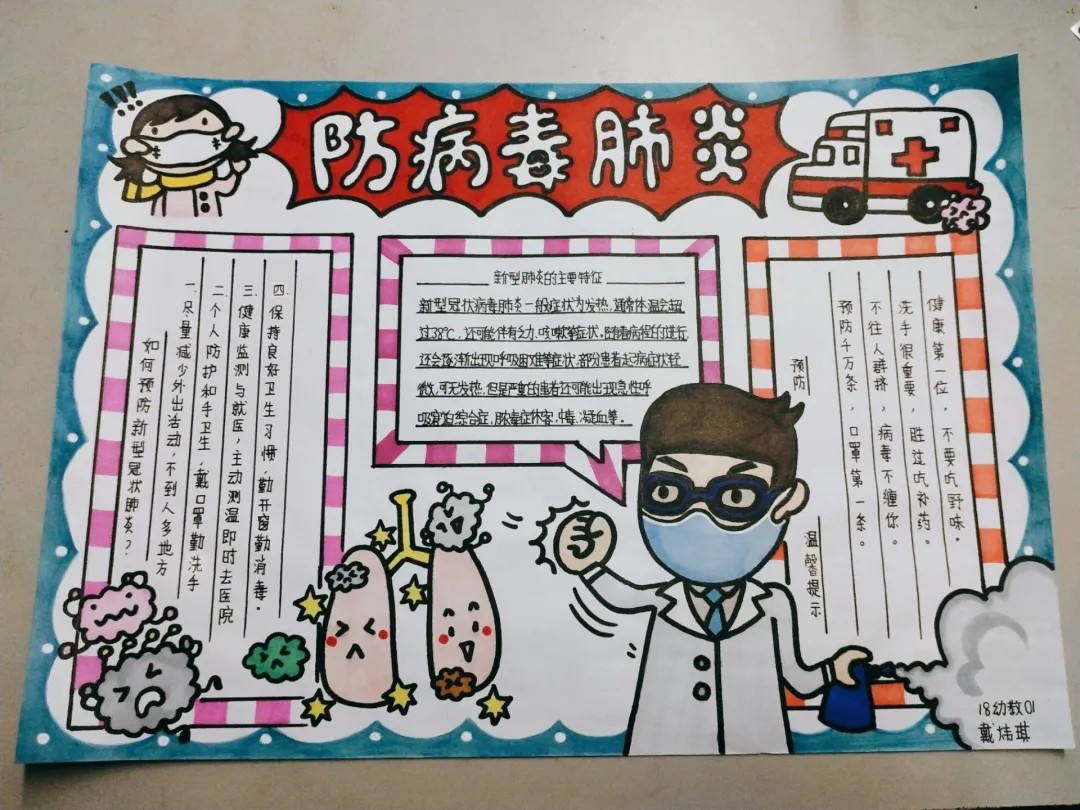 !!!
防病毒肺炎
如何预防新型冠状肺炎?
一.尽量减少外出活动,不到人多地方
二.个人防护和手卫生,戴口罩勤洗手
三.健康监测与就医,主动测温即时去医院
四.保持良好卫生习惯,勤开窗勤消毒。
新型肺炎的主要特征
新型冠状病毒肺炎一般症状为发热,通常体温会超
过38℃,还可能伴有乏力、咳嗽等症状。随着病程的进行,
还会逐渐出现呼吸困难等症状,部分患者起病症状轻
微,可无发热,但是严重的患者还可能出现急性呼
吸窘迫综合症,脓毒症休客,中毒、凝血等.
预防 温馨提示
预防千万条,口罩第一条。
不往人群挤,病毒不缠你。
洗手很重要,胜过吃补药。
健康第一位,不要吃野味。
18幼教01
戴炜琪